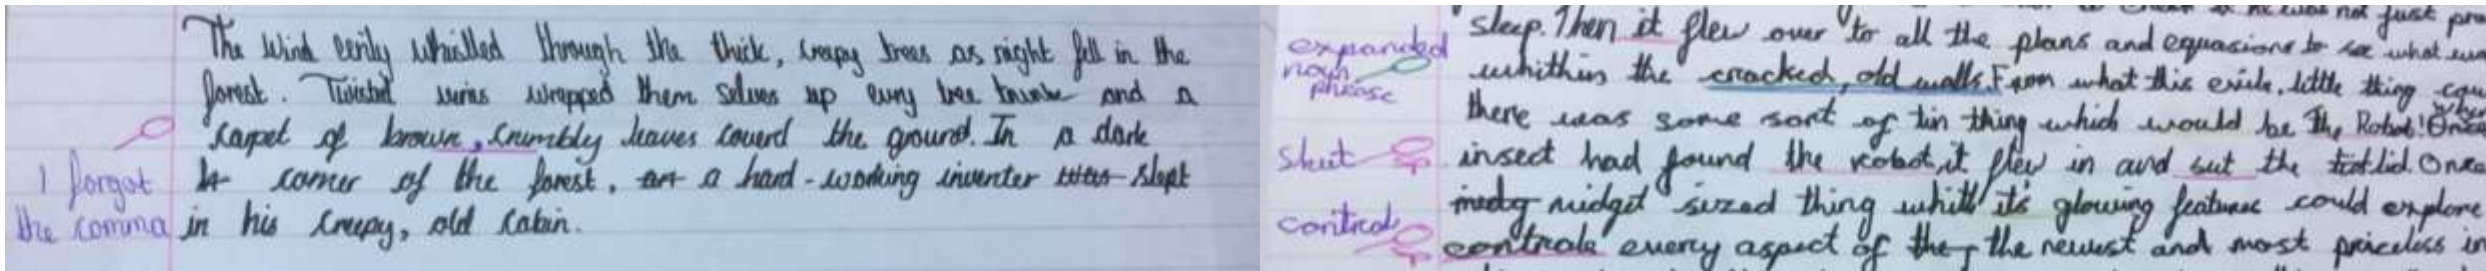 The wind eerily whislled through the thick, creepy trees as night fell in the
forest. Twisted vines wrapped them selves up every tree trunk and a
carpet of brown, crumbly leaves coverd the ground. In a dark
corner of the forest, a hard-working inventer slept
I forgot
the comma
in his creepy, old cabin.
sleep. Then it flew over to all the plans and equasions to see what
expanded
noun
phrase
whithin the cracked, old walls. From what this little thing
there was some sort of tin thing which would be The Robot!
shut
insect had found the robot, it flew in and sut the lid. Once
midget sized thing whith it's glowing features could explore
control
controle every aspect of the the newest and most priceless